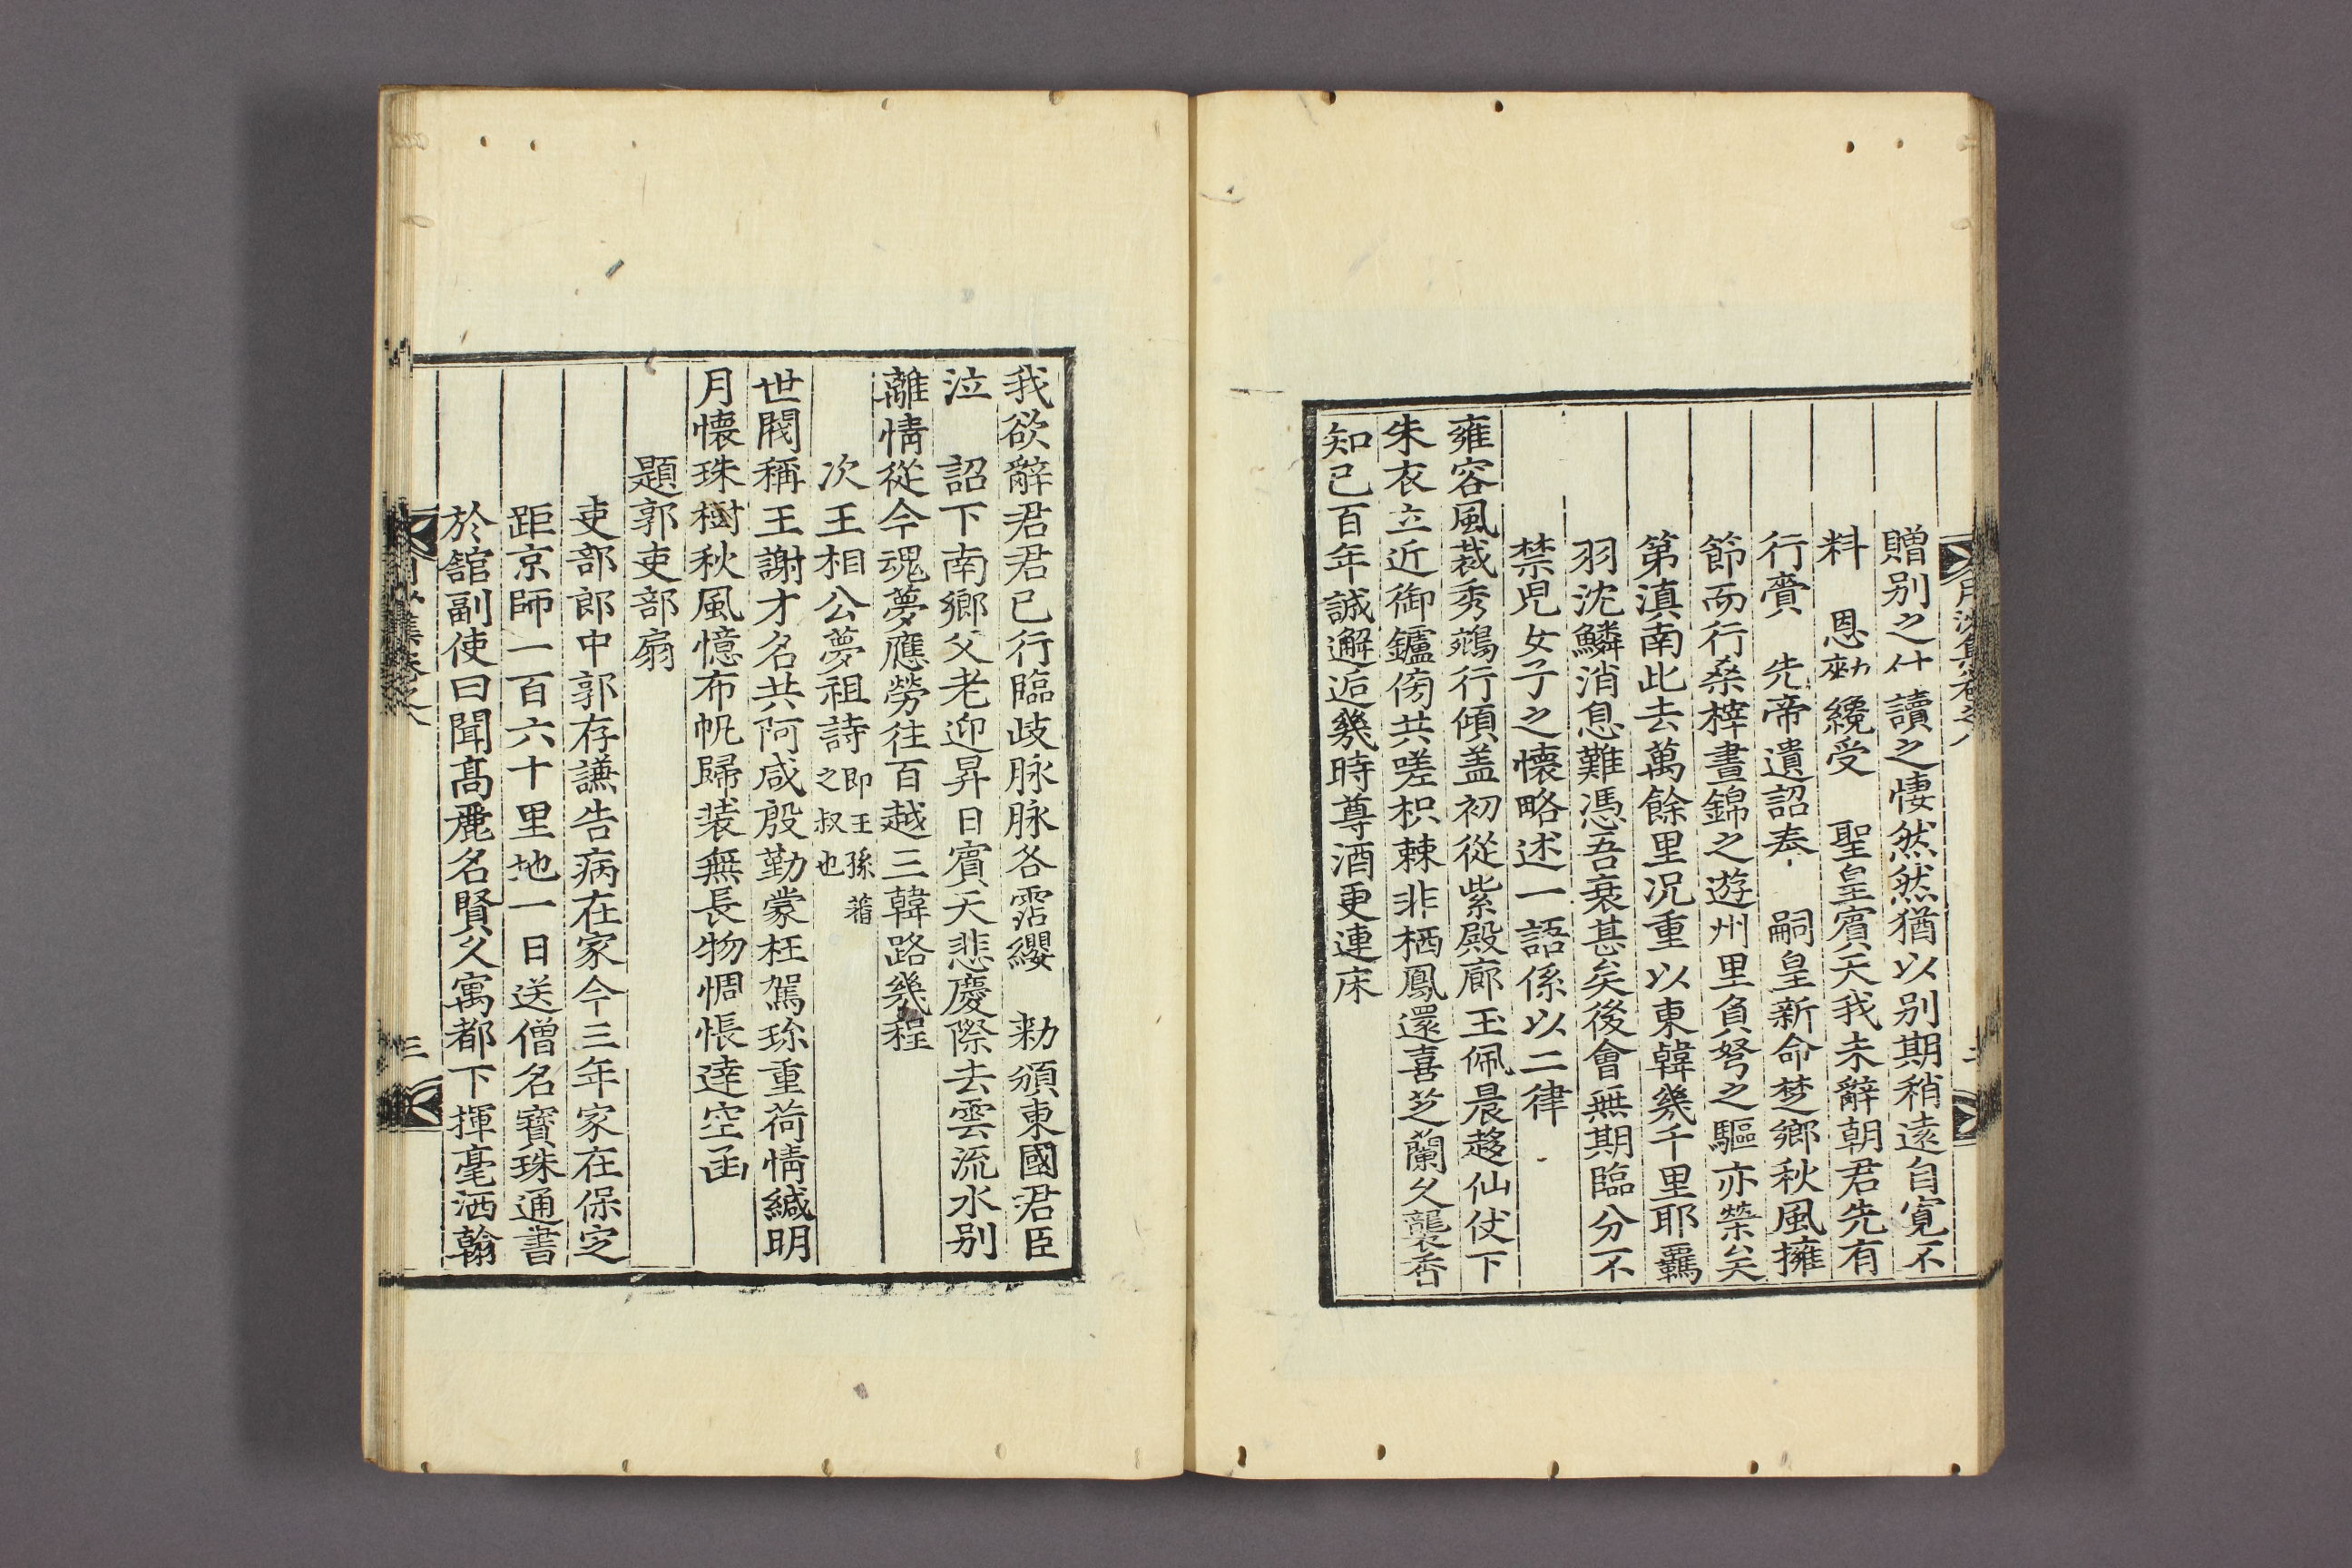 月沙集卷之八
贈別之什讀之悽然然猶以別期稍遠自寬不
料　恩勑纔受　聖皇賓天我未辭朝君先有
行賷　先帝遺詔奉　嗣皇新命楚鄉秋風擁
節而行桑梓晝錦之遊州里負弩之驅亦榮矣
第滇南此去萬餘里况重以東韓幾千里耶羈
羽沈鱗消息難憑吾衰甚矣後會無期臨分不
禁兒女子之懷略述一語係以二律
雍容風裁秀鵷行傾盖初從紫殿廊玉佩晨趍仙仗下
朱衣立近御鑪傍共嗟枳棘非栖鳳還喜芝蘭久襲香
知己百年誠邂逅幾時尊酒更連床
我欲辭君君已行臨歧脉脉各霑纓　勑頒東國君臣
泣　詔下南鄉父老迎昇日賓天悲慶際去雲流水別
離情從今魂夢應勞往百越三韓路幾程
次王相公夢祖詩即王孫蕃之叔也
世閥稱王謝才名共阿咸殷勤蒙枉駕珎重荷情緘明
月懷珠樹秋風憶布帆歸裝無長物惆悵達空函
題郭吏部扇
吏部郎中郭存謙告病在家今三年家在保定
距京師一百六十里地一日送僧名寶珠通書
於舘副使曰聞髙麗名賢久寓都下揮毫洒翰
月沙集卷之八
三